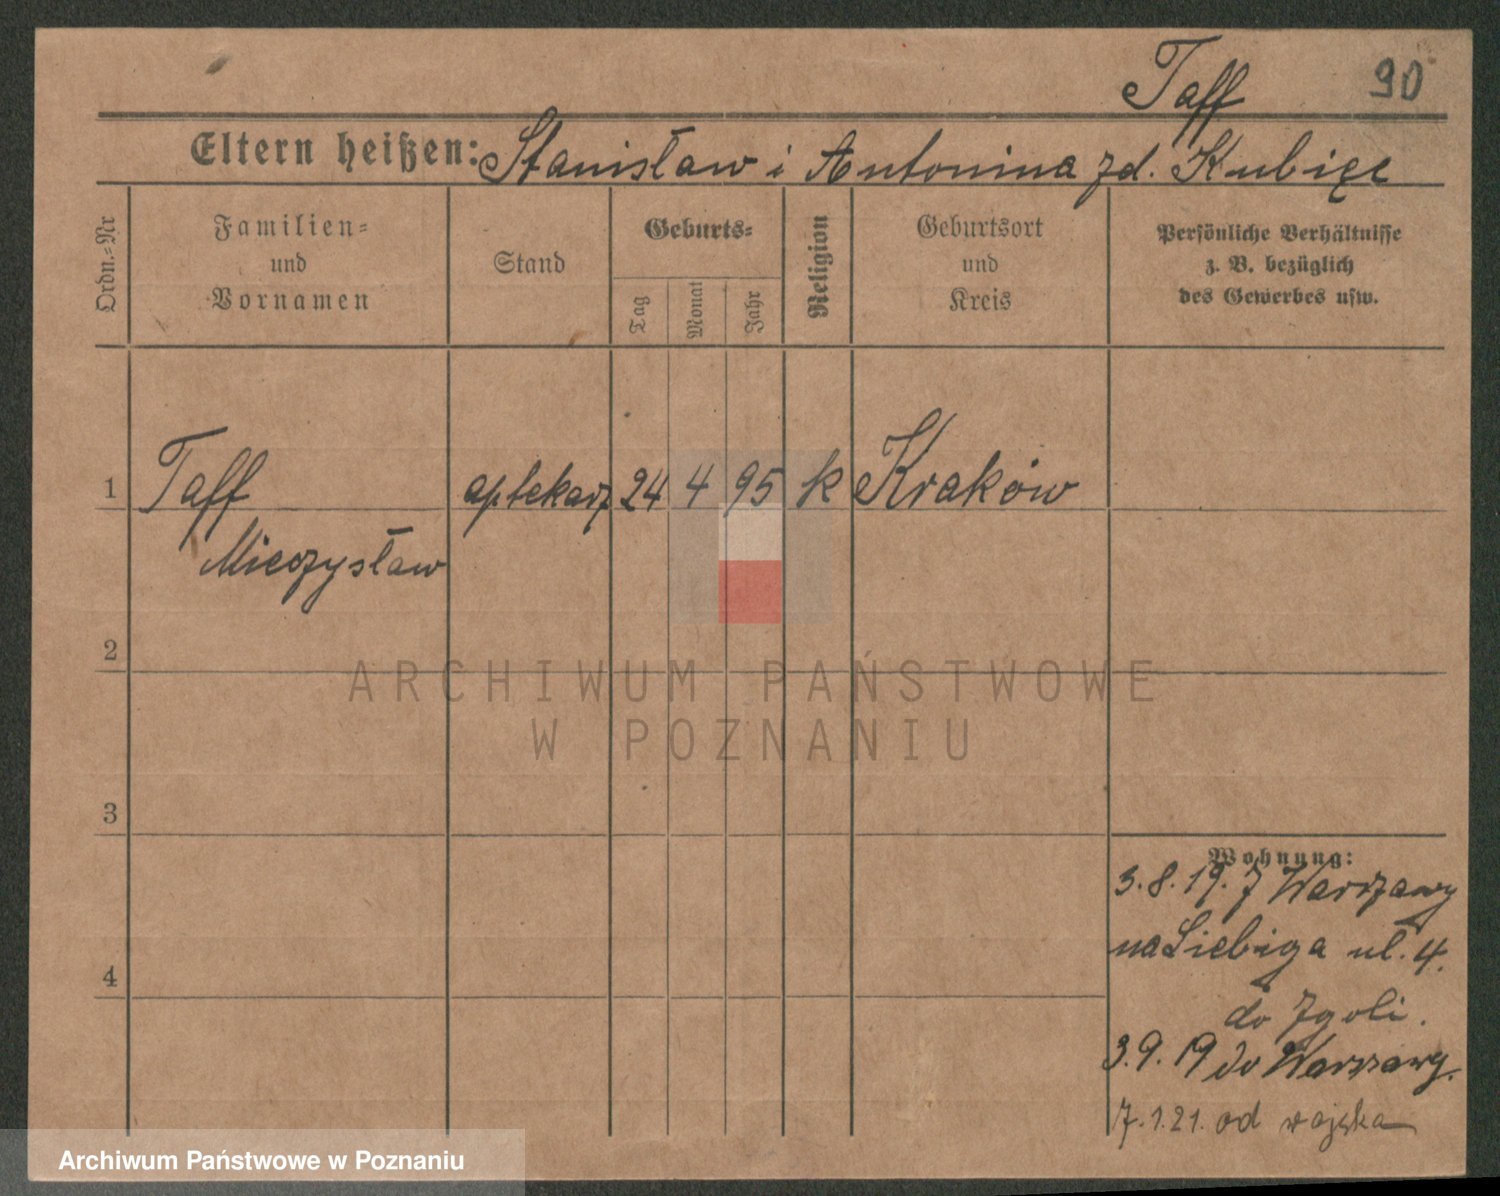 Taff 90
Eltern heißen: Stanisław i Antonina zd. Kubięc
Ordn.-Nr
Familien- und Vornamen
Stand
Geburts-
Tag
Monat
Jahr
Religion
Geburtsort und Kreis
Persönliche Verhältnisse
z. B. bezüglich
des Gewerbes usw.
1 Taff aptekarz 24 4 95 k Kraków
Mieczysław
2
ARCHIWUM PAŃSTWOWE
W POZNANIU
3
Wohnung:
3.8.19. z Warszawy
na Liebiga ul. 4.
4
do Zgoli.
3.9.19 do Warszawy.
7.1.21. od wojska
Archiwum Państwowe w Poznaniu